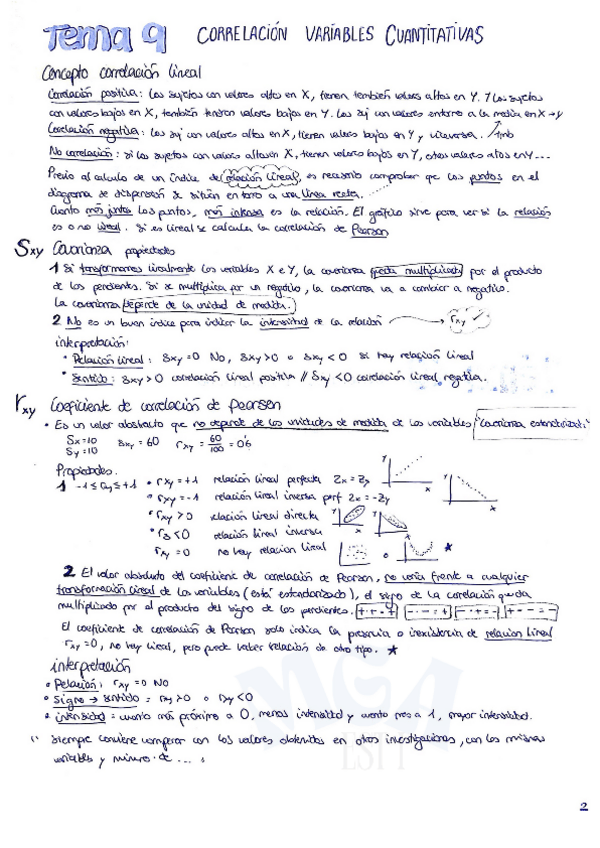 Tema 9 CORRELACIÓN VARIABLES CUANTITATIVAS
Concepto correlación lineal
Correlación positiva: Los sujetos con valores altos en X, tienen también valores altos en Y. Y los sujetos
con valores bajos en X, también tendrán valores bajos en Y. Los suj con valores entorno a la media en X → y
Correlación negativa: Los suj con valores altos en X, tienen valores bajos en Y y viceversa. tmb
No correlación: Si los sujetos con valores altos en X, tienen valores bajos en Y, otros valores altos en Y...
Previo al cálculo de un índice de relación lineal, es necesario comprobar que los puntos en el
diagrama de dispersión se sitúan en torno a una línea recta.
Cuanto más juntos los puntos, más intensa es la relación. El gráfico sirve para ver si la relación
es o no lineal. Si es lineal se calcula la correlación de Pearson
Sxy Covarianza propiedades
1 Si transformamos linealmente las variables X e Y, la covarianza queda multiplicada por el producto
de las pendientes. Si se multiplica por un negativo, la covarianza va a cambiar a negativo.
La covarianza depende de la unidad de medida.
2 No es un buen índice para indicar la intensidad de la relación → rxy ✓
interpretación:
• Relación lineal: Sxy = 0 No, Sxy > 0 o Sxy < 0 si hay relación lineal
• Sentido: Sxy > 0 correlación lineal positiva // Sxy < 0 correlación lineal negativa.
rxy Coeficiente de correlación de Pearson
• Es un valor abstracto que no depende de las unidades de medida de las variables "covarianza estandarizada"
Sx = 10 Sxy = 60 rxy = 60/100 = 0'6
Sy = 10
Propiedades.
1 -1 ≤ rxy ≤ +1 • rxy = +1 relación lineal perfecta Zx = Zy
• rxy = -1 relación lineal inversa perf Zx = -Zy
• rxy > 0 relación lineal directa
• r < 0 relación lineal inversa
rxy = 0 no hay relacion lineal o *
y x y x y x
2 El valor absoluto del coeficiente de correlación de Pearson, no varía frente a cualquier
transformación lineal de las variables (está estandarizado), el signo de la correlación queda
multiplicado por el producto del signo de las pendientes. + · + = + - · - = + - · + = - + · - = -
El coeficiente de correlación de Pearson solo indica la presencia o inexistencia de relación lineal
rxy = 0, no hay lineal, pero puede haber relación de otro tipo. *
interpretación
• Relación: rxy = 0 NO
• Signo → sentido = rxy > 0 o rxy < 0
• intensidad = cuanto más próximo a 0, menos intensidad y cuanto mas a 1, mayor intensidad.
Siempre conviene comparar con los valores obtenidos en otras investigaciones, con las mismas
variables y número de ...
2